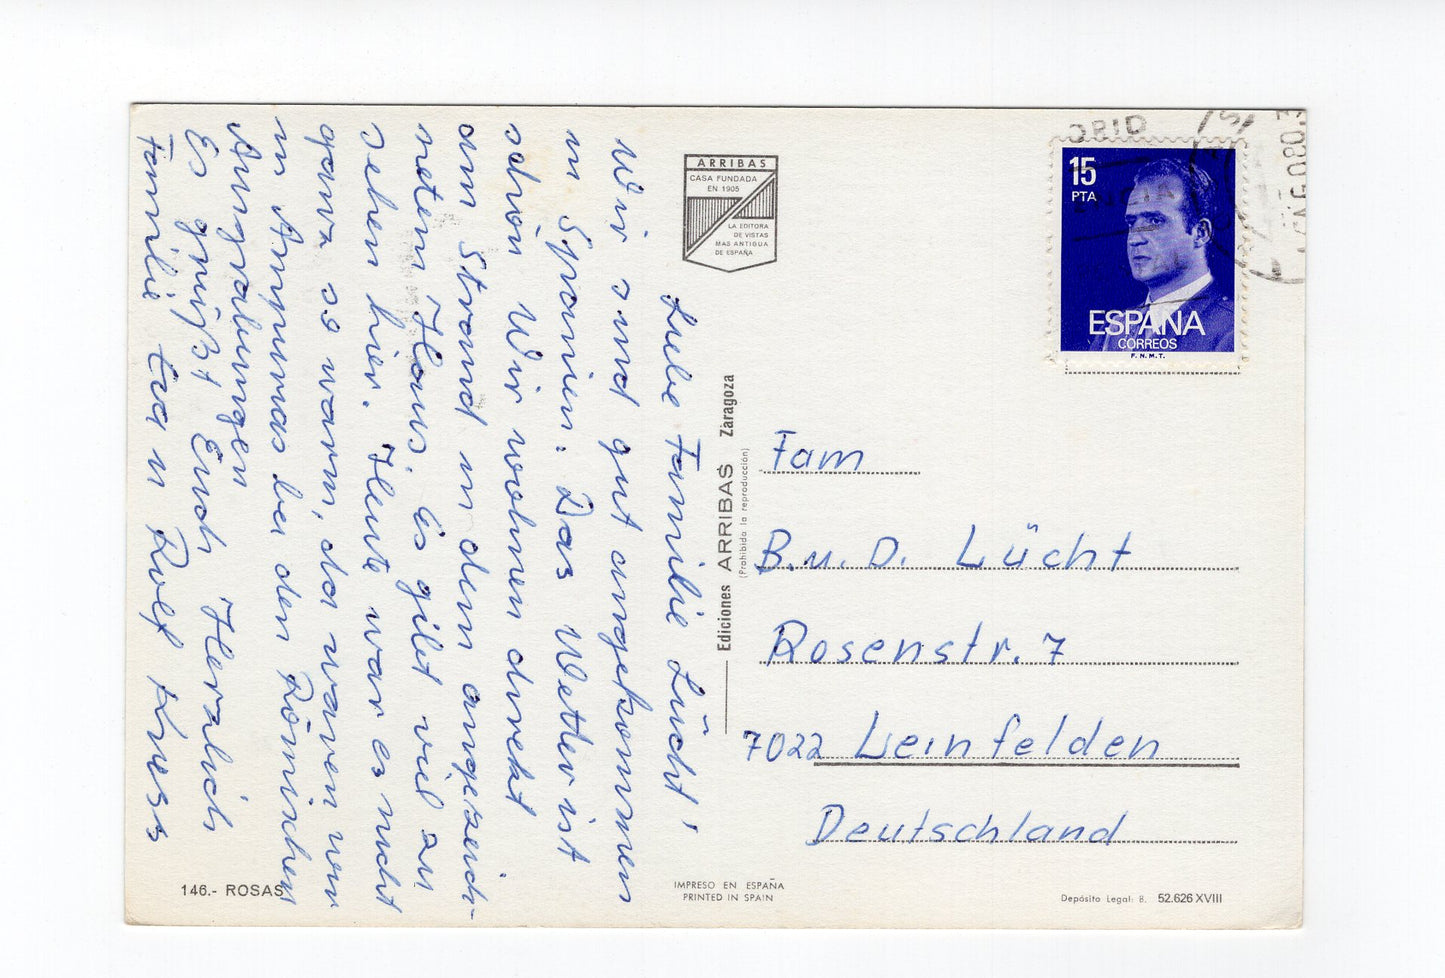 ARRIBAS
CASA FUNDADA
EN 1905
LA EDITORA
DE VISTAS
MAS ANTIGUA
DE ESPAÑA
Liebe Familie Lücht!
Wir sind gut angekommen
in Spanien. Das Wetter ist
schön. Wir wohnen direkt
am Strand in dem angezeich-
netem Haus. Es gibt viel zu
sehen hier. Heute war es nicht
ganz so warm, da waren wir
in Ampurias bei den Römischen
Ausgrabungen
Es grüßt Euch Herzlich
Familie Eva u Rolf Kress
146.- ROSAS
Ediciones ARRIBAS Zaragoza
(Prohibida la reproducción)
IMPRESO EN ESPAÑA
PRINTED IN SPAIN
15
PTA
ESPAÑA
CORREOS
F. N. M. T.
Fam
B. u. D. Lücht
Rosenstr. 7
7022 Leinfelden
Deutschland
Depósito Legal: B. 52.626 XVIII